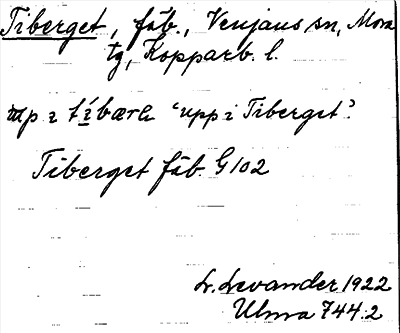 Tiberget, fäb., Venjans sn, Mora
tg, Kopparb. l.
upp i tíbærɛ 'upp i Tiberget'.
Tiberget fäb. G 102
L. Levander 1922
Ulma 744:2